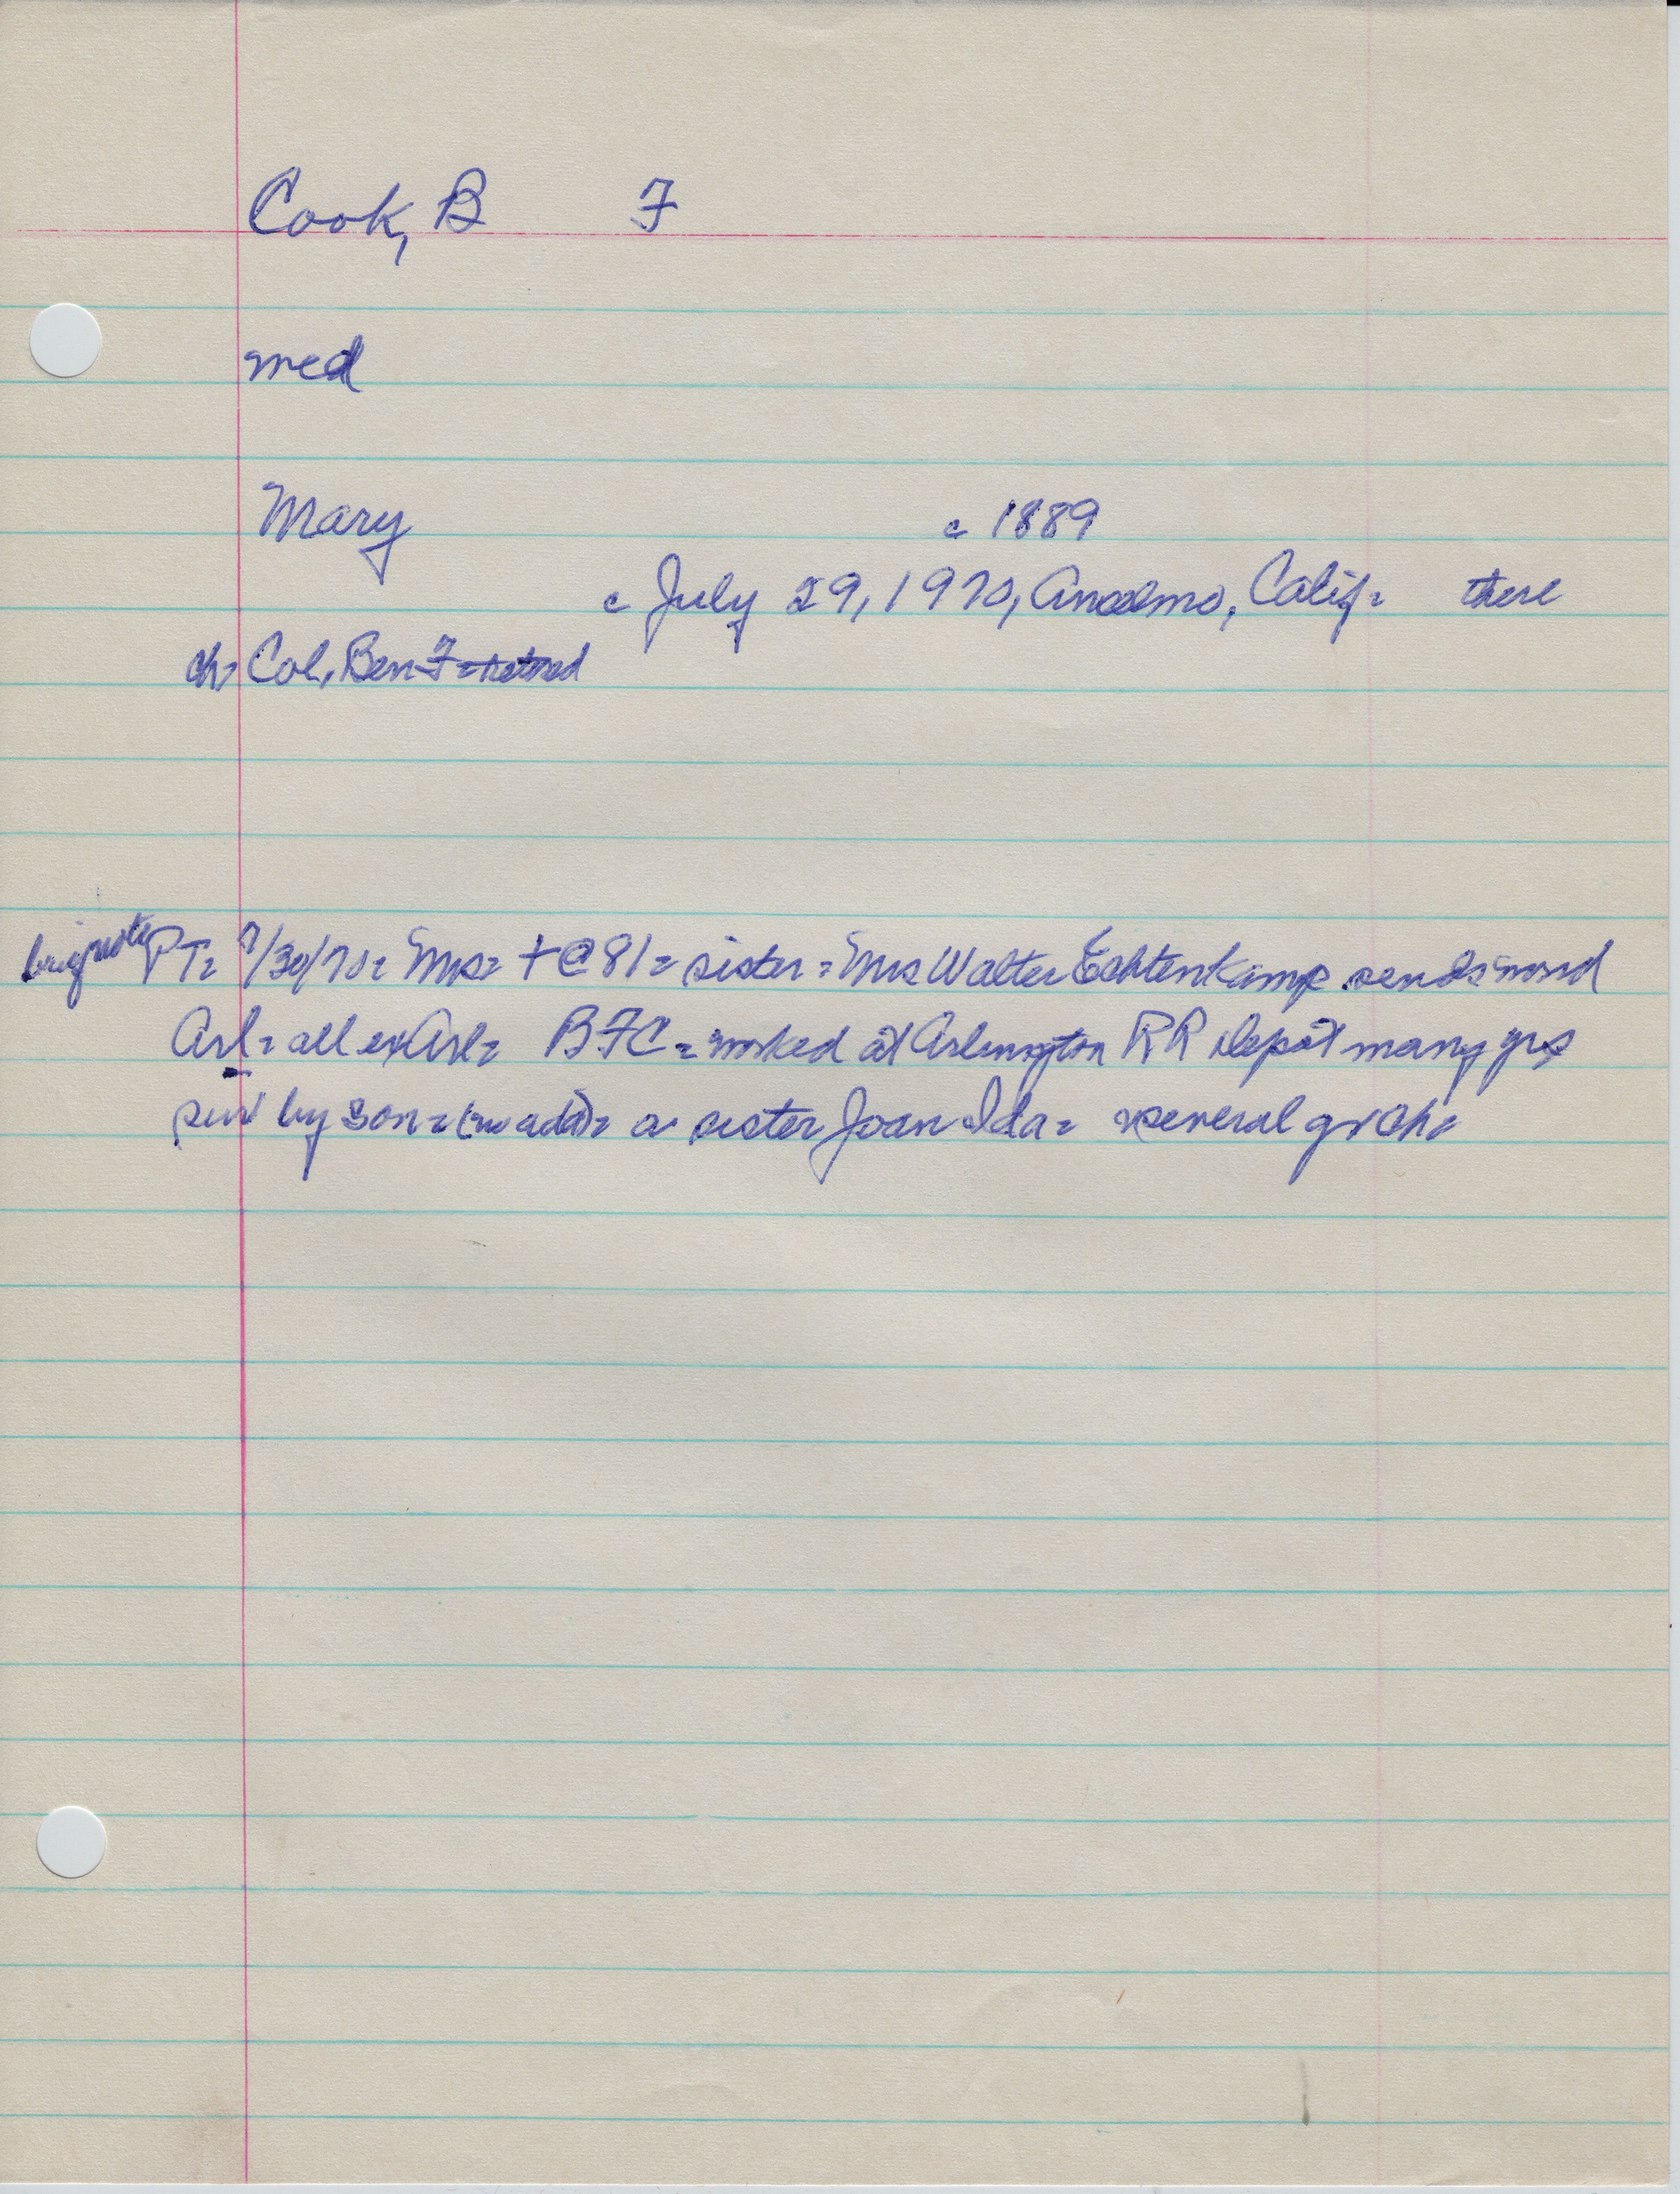 Cook, B F
med
Mary c 1889
c July 29, 1970, Anselmo, Calif= there
ch= Col. Ben F= retired
brief note PT= 7/30/70= Mrs= + @ 81= sister= Mrs Walter Echtenkamp sends word
Arl= all ex Arl= BFC= worked at Arlington RR depot many yrs
surv by son= (no add)= a sister Joan Ida= several gr ch=